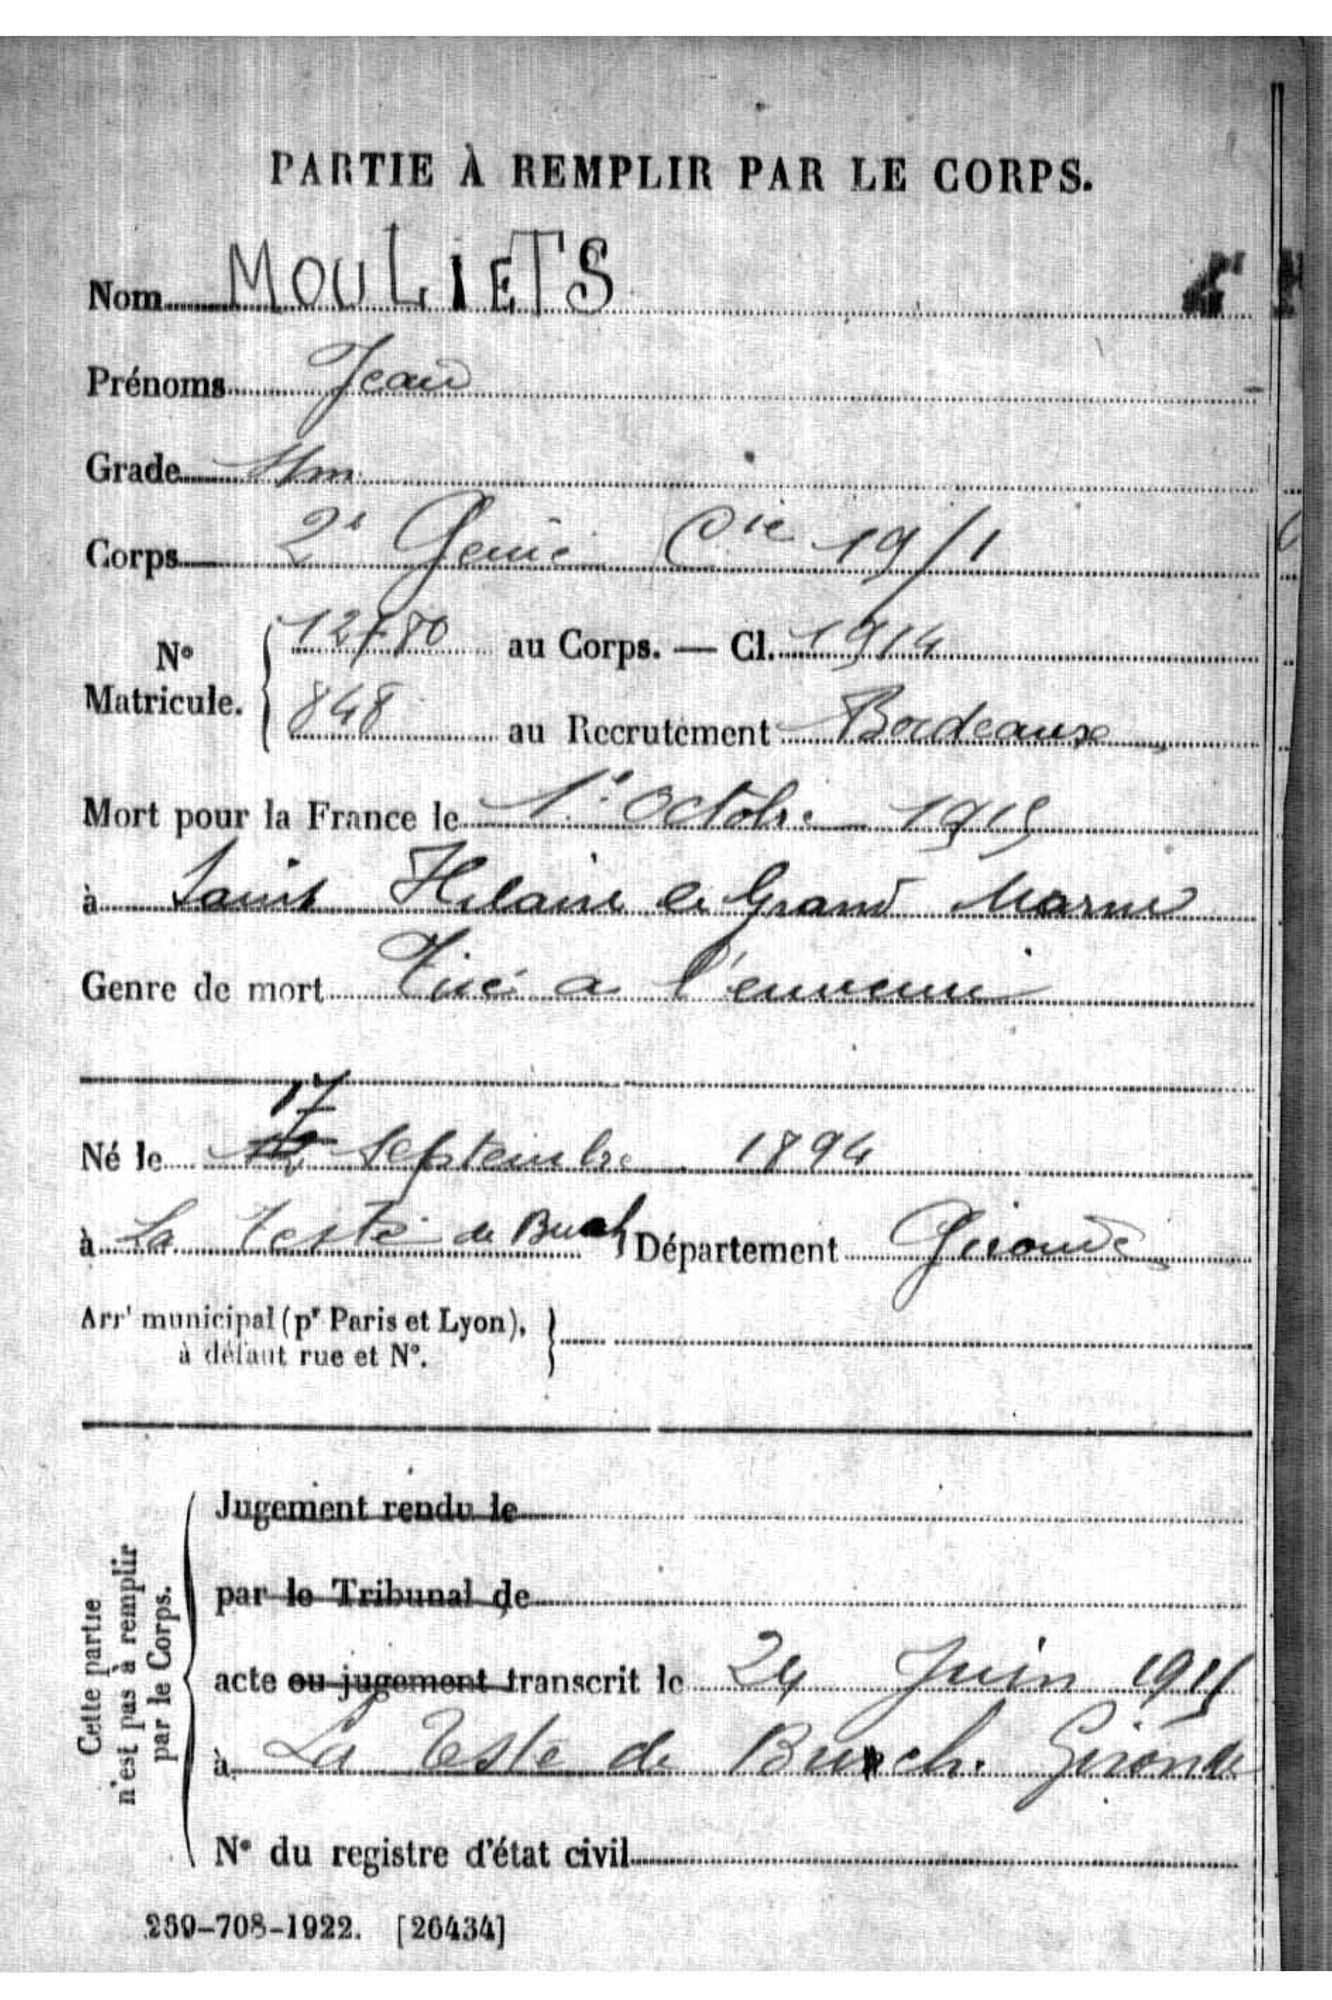 PARTIE À REMPLIR PAR LE CORPS.
Nom MOULIETS
Prénoms Jean
Grade
Corps 2e Génie Cie 19/1
N° Matricule. 12780 au Corps. — Cl. 1914
848 au Recrutement Bordeaux
Mort pour la France le 1er Octobre 1915
à Saint Hilaire le Grand Marne
Genre de mort Tué à l'ennemi
Né le 17 Septembre 1894
à La Teste de Buch Département Gironde
Arrt municipal (pr Paris et Lyon),
à défaut rue et N°.
Cette partie
n'est pas à remplir
par le Corps.
Jugement rendu le
par le Tribunal de
acte ou jugement transcrit le 24 Juin 191
à La Teste de Buch. Gironde
N° du registre d'état civil
259-708-1922. [26434]